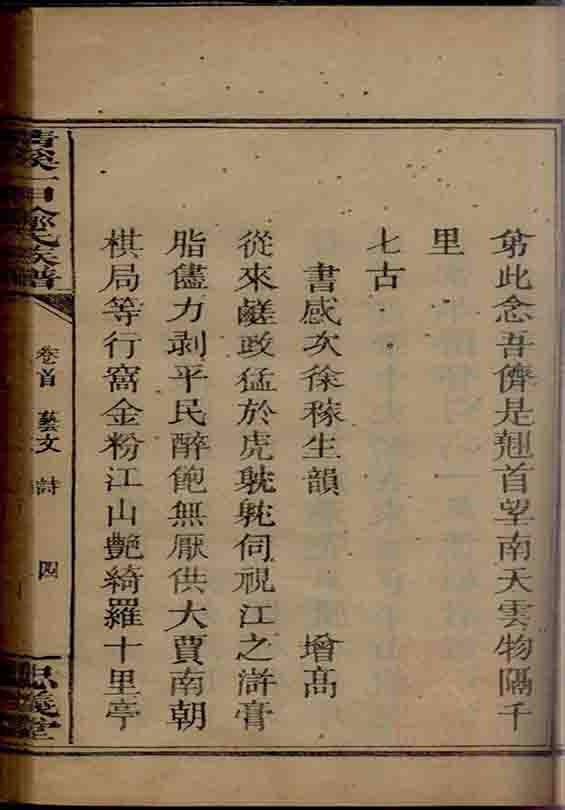 第此念吾儕是翹首望南天雲物隔千
里
七古
書感次徐稼生韻 增高
從來鹺政猛於虎眈眈伺視江之滸膏
脂儘力剥平民醉飽無厭供大賈南朝
棋局等行窩金粉江山艷綺羅十里亭
卷首 藝文 詩 四